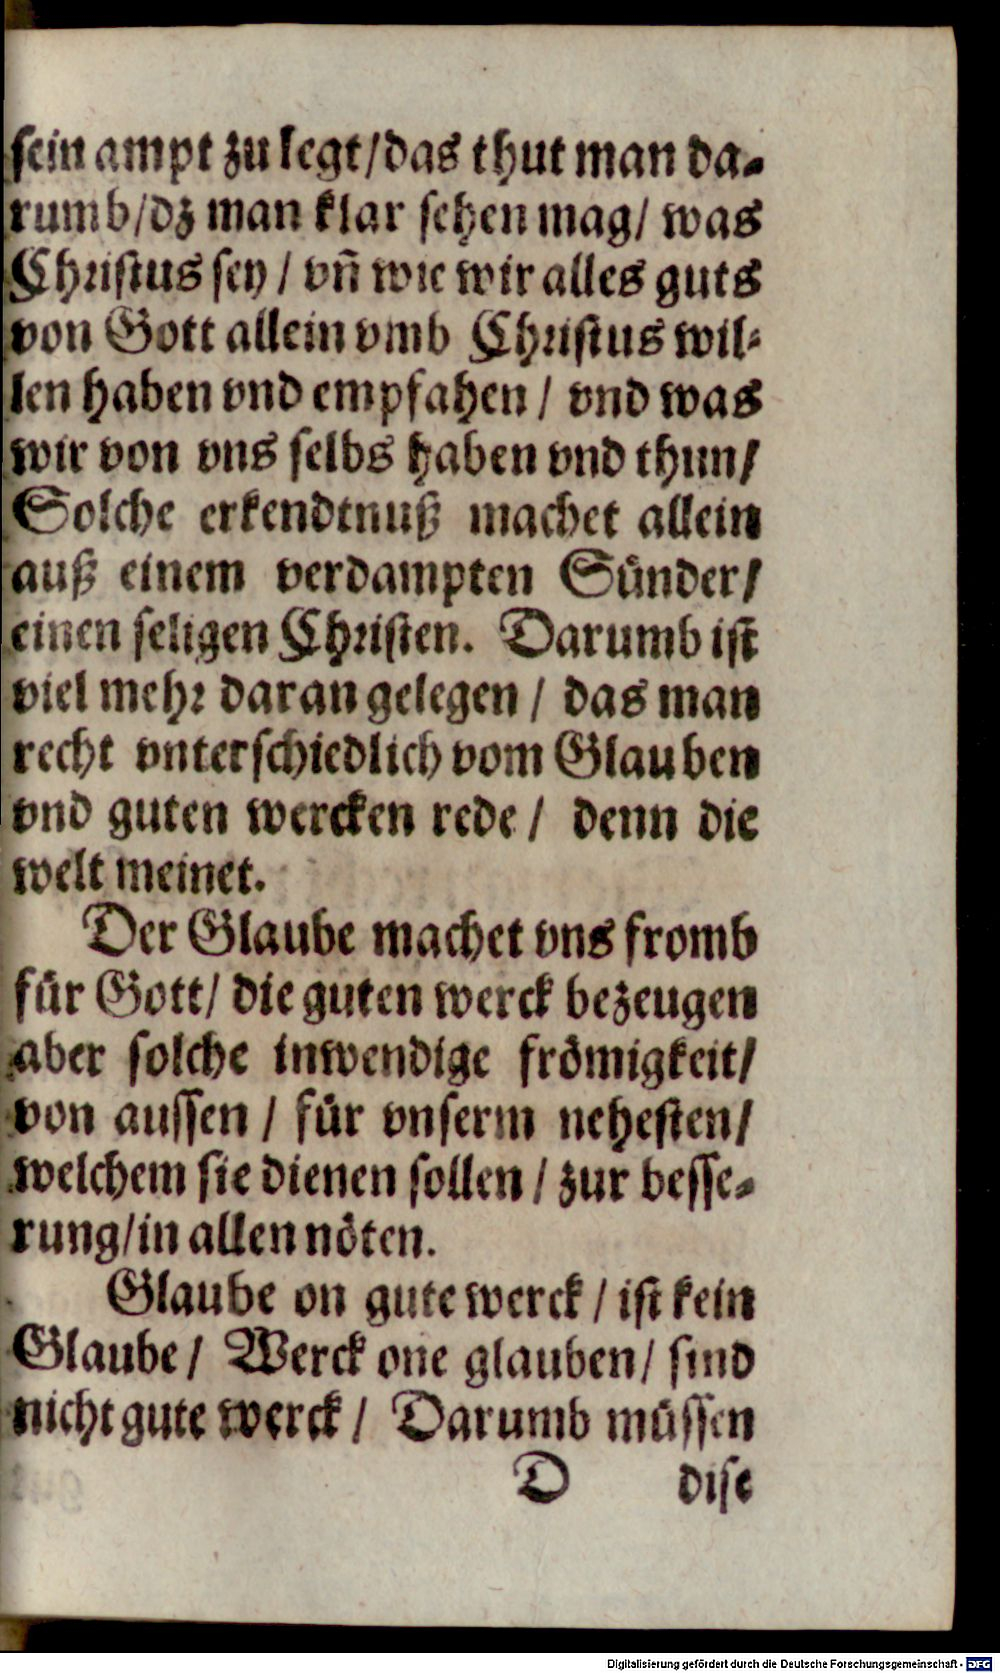 sein ampt zu legt/das thut man da-
rumb/dz man klar sehen mag/ was
Christus sey / vñ wie wir alles guts
von Gott allein vmb Christus wil-
len haben vnd empfahen / vnd was
wir von vns selbs haben vnd thun/
Solche erkendtnuß machet allein
auß einem verdampten Sünder/
einen seligen Christen. Darumb ist
viel mehr daran gelegen / das man
recht vnterschiedlich vom Glauben
vnd guten wercken rede / denn die
welt meinet.
Der Glaube machet vns fromb
für Gott/ die guten werck bezeugen
aber solche inwendige frömigkeit/
von aussen / für vnserm nehesten/
welchem sie dienen sollen / zur besse-
rung/in allen nöten.
Glaube on gute werck / ist kein
Glaube / Werck one glauben/ sind
nicht gute werck / Darumb müssen
D dise
Digitalisierung gefördert durch die Deutsche Forschungsgemeinschaft - DFG